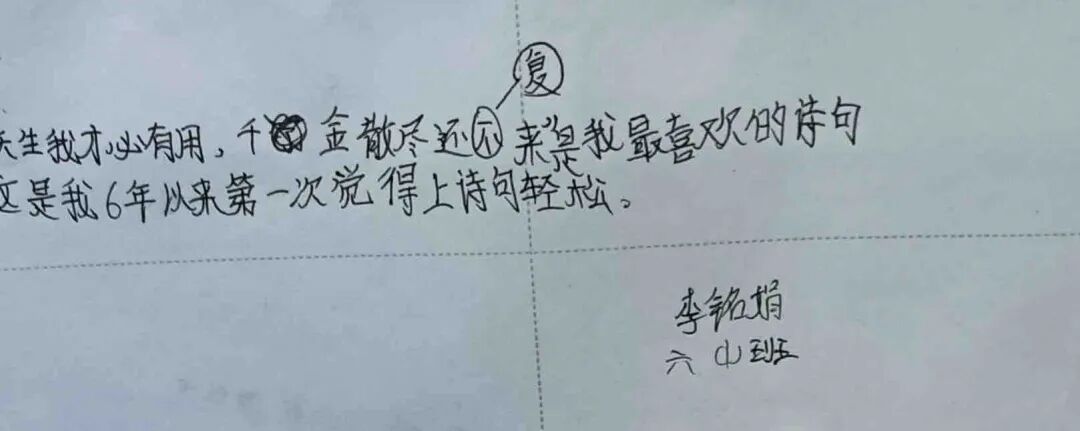 复
天生我才必有用,千 金散尽还不来是我最喜欢的诗句
这是我6年以来第一次觉得上诗句轻松。
李铭娟
六(1)班